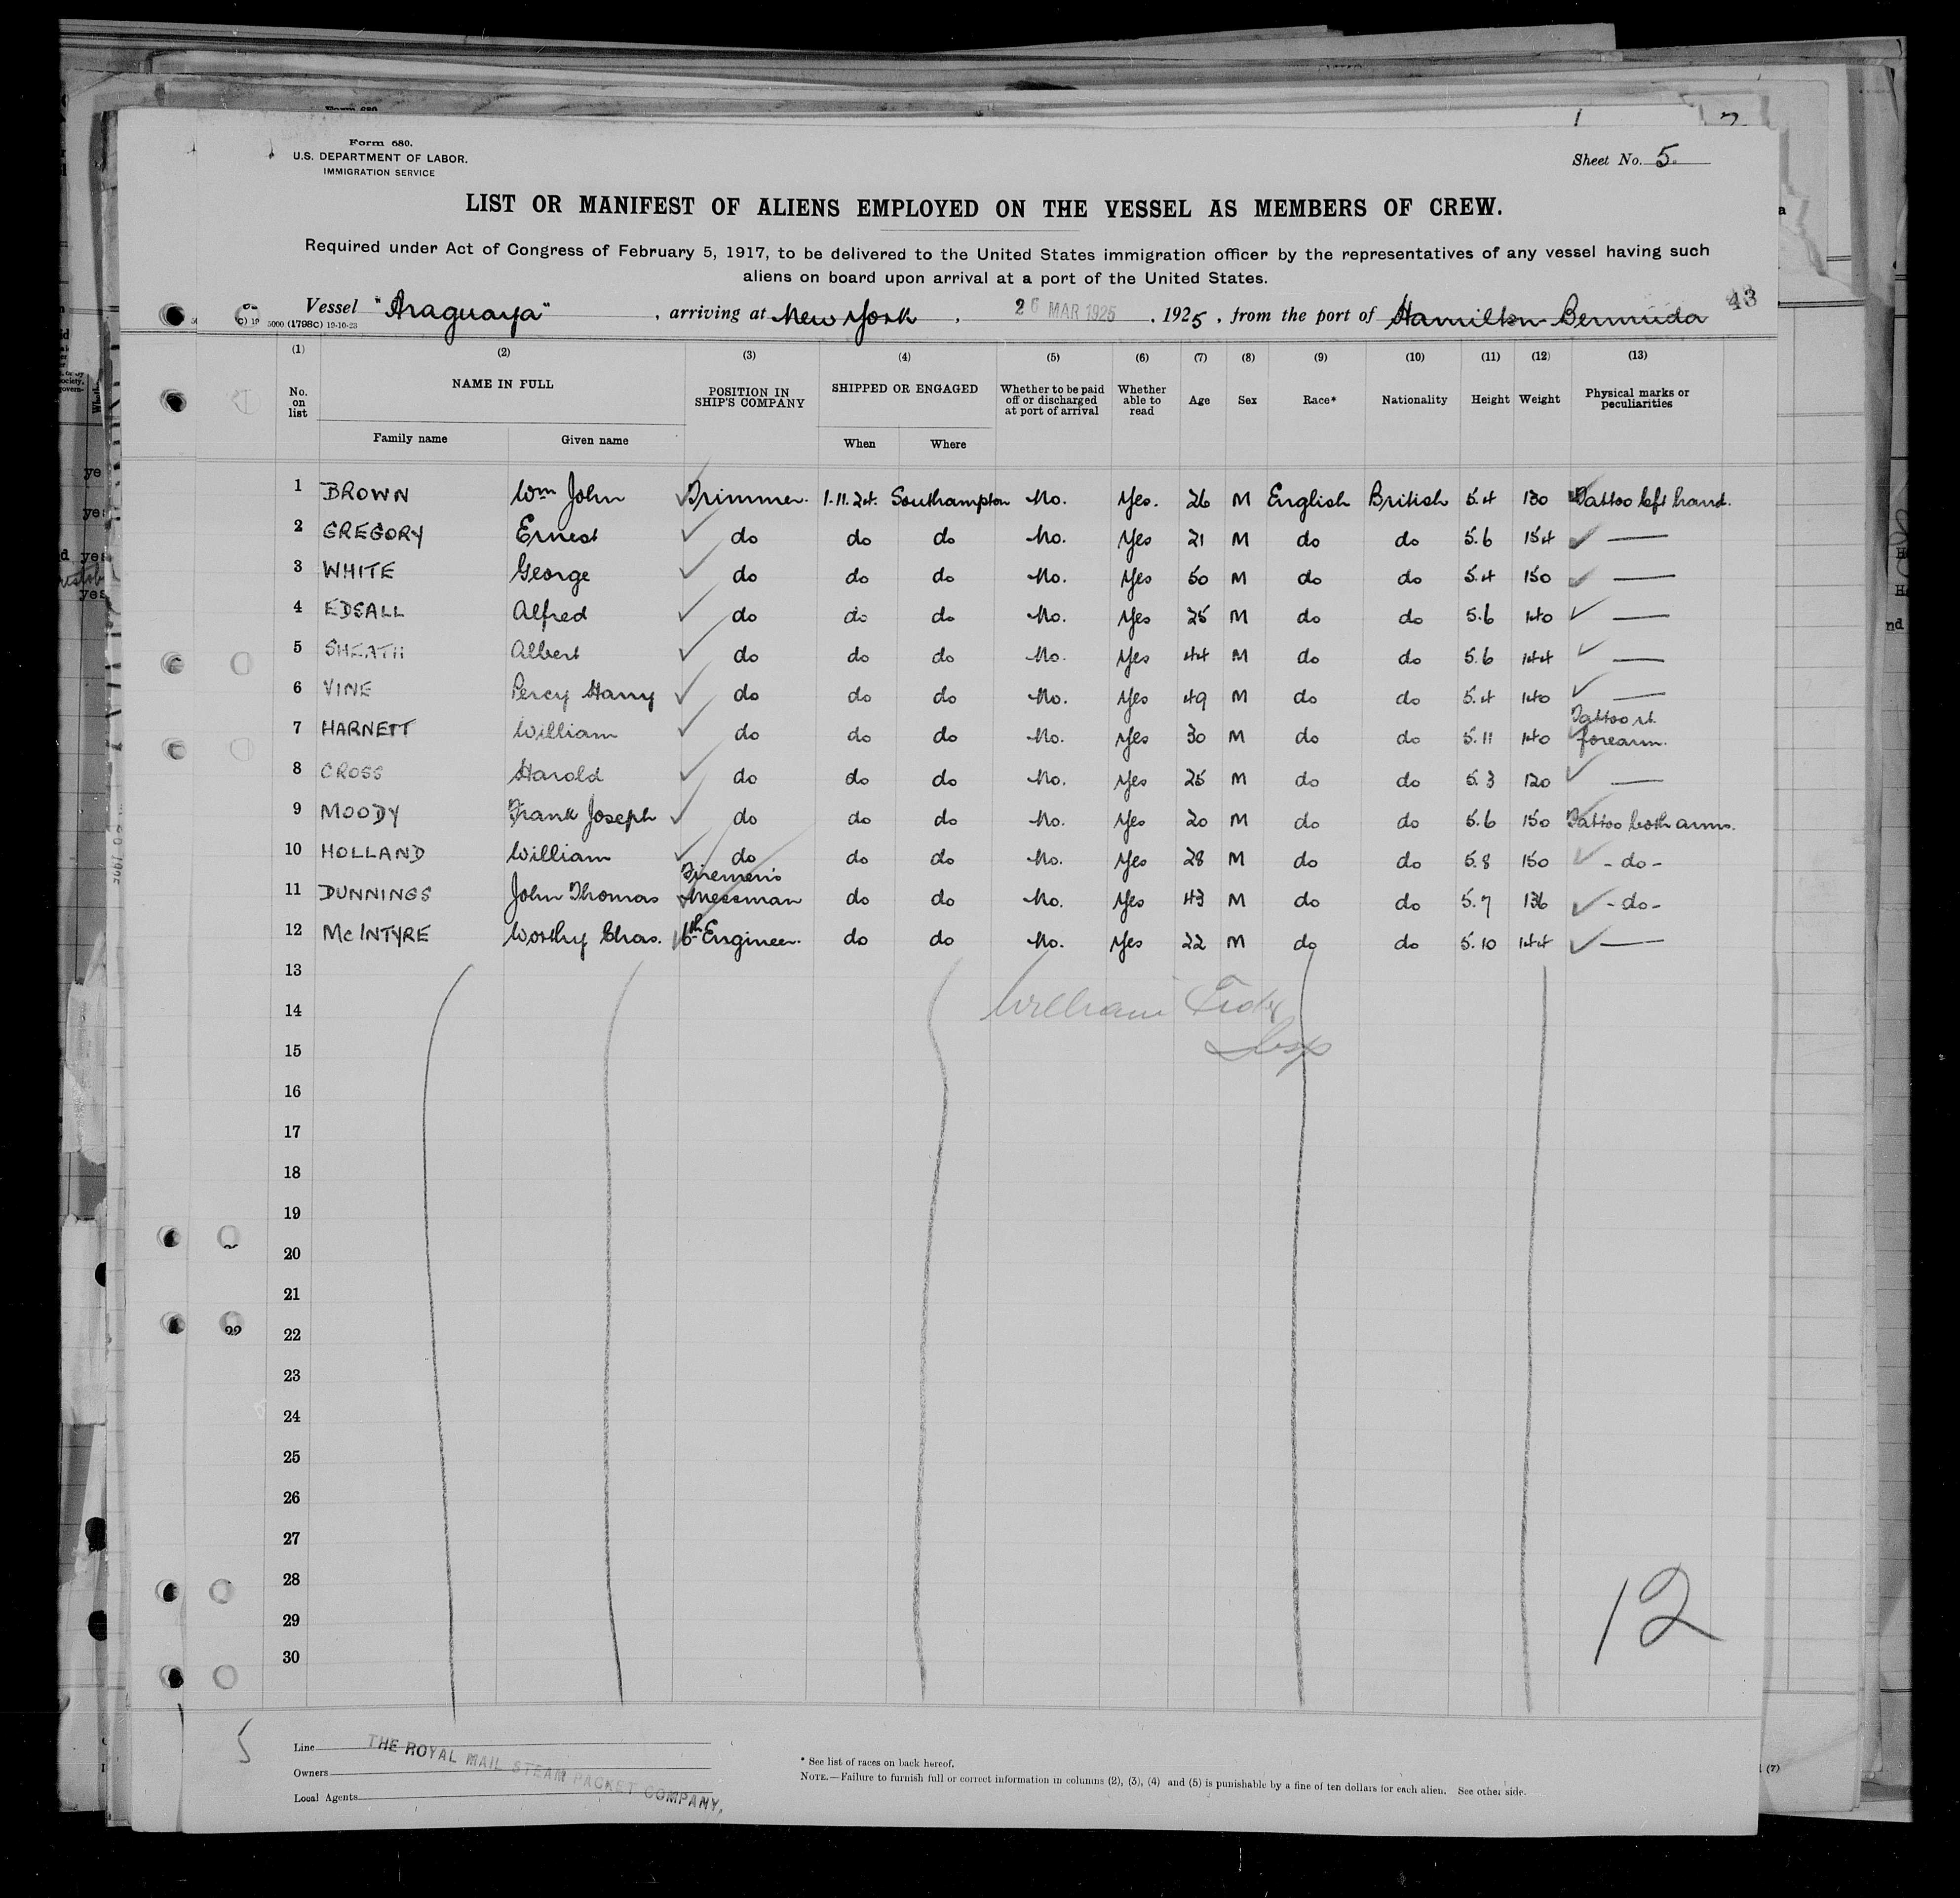 Form 680.
U.S. DEPARTMENT OF LABOR.
IMMIGRATION SERVICE
Sheet No. 5.
LIST OR MANIFEST OF ALIENS EMPLOYED ON THE VESSEL AS MEMBERS OF CREW.
Required under Act of Congress of February 5, 1917, to be delivered to the United States immigration officer by the representatives of any vessel having such
aliens on board upon arrival at a port of the United States.
43
Vessel "Araguaya", arriving at New York, 26 MAR 1925, 1925, from the port of Hamilton Bermuda
5000 (1798C) 19-10-23
(1) (2) (3) (4) (5) (6) (7) (8) (9) (10) (11) (12) (13)
No. on list NAME IN FULL POSITION IN SHIP'S COMPANY SHIPPED OR ENGAGED Whether to be paid off or discharged at port of arrival Whether able to read Age Sex Race* Nationality Height Weight Physical marks or peculiarities
Family name Given name When Where
1 BROWN Wm John Trimmer. 1.11.24. Southampton No. Yes. 26 M English British 5.4 130 Tattoo left hand.
2 GREGORY Ernest do do do No. Yes 21 M do do 5.6 154 —
3 WHITE George do do do No. Yes 50 M do do 5.4 150 —
4 EDSALL Alfred do do do No. Yes 25 M do do 5.6 140 —
5 SHEATH Albert do do do No. Yes 44 M do do 5.6 144 —
6 VINE Percy Harry do do do No. Yes 49 M do do 5.4 140 —
7 HARNETT William do do do No. Yes 30 M do do 5.11 140 Tattoo rt. forearm.
8 CROSS Harold do do do No. Yes 25 M do do 5.3 120 —
9 MOODY Frank Joseph do do do No. Yes 20 M do do 5.6 150 Tattoo both arms.
10 HOLLAND William do do do No. Yes 28 M do do 5.8 150 - do -
11 DUNNINGS John Thomas Firemen's Messman do do No. Yes 43 M do do 5.7 136 - do -
12 McINTYRE Worthy Chas. 6th Engineer. do do No. Yes 22 M do do 5.10 144 —
13
14 William
15
16
17
18
19
20
21
22
23
24
25
26
27
28
29
30
12
5
Line
THE ROYAL MAIL STEAM PACKET COMPANY,
Owners
Local Agents
* See list of races on back hereof.
NOTE.—Failure to furnish full or correct information in columns (2), (3), (4) and (5) is punishable by a fine of ten dollars for each alien. See other side.